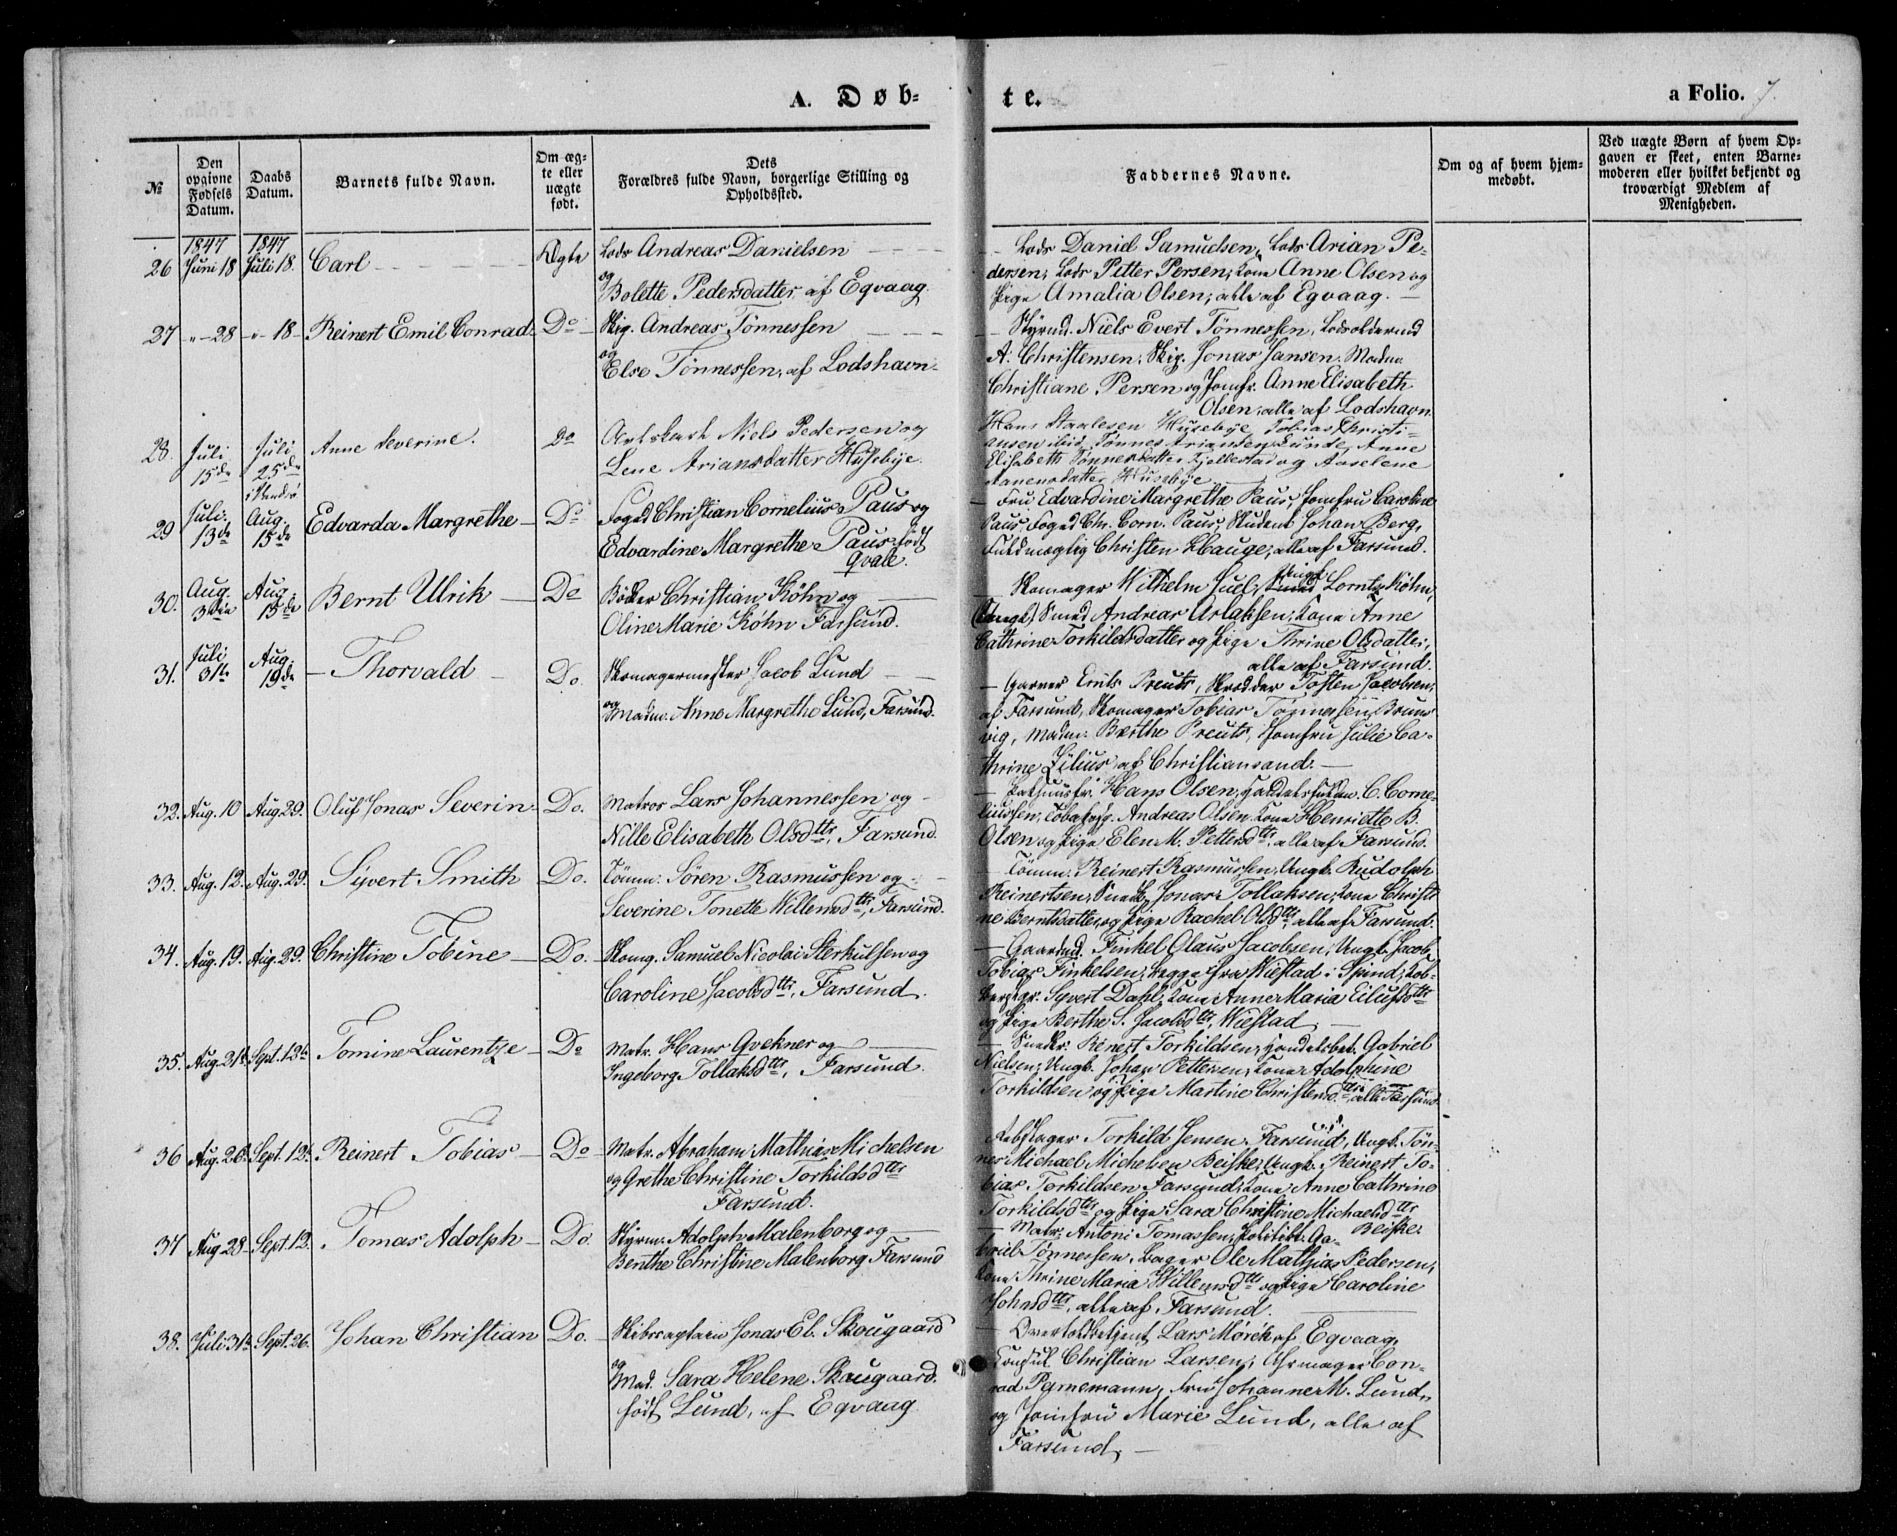 A. Døb-
te.
a Folio. 7.
№
Den opgivne Fødsels Datum.
Daabs Datum.
Barnets fulde Navn.
Om æg-te eller uægte født.
Dets Forældres fulde Navn, borgerlige Stilling og Opholdssted.
Faddernes Navne.
Om og af hvem hjem-medøbt.
Ved uægte Børn af hvem Op-gaven er skeet, enten Barne-moderen eller hvilket bekjendt og troværdigt Medlem af Menigheden.
1847 1847
26 Juni 18 Juli 18. Carl Ægte Lods Andreas Danielsen
og Bolette Pedersdatter af Egvaag.
Lods Daniel Samuelsen, Lods Arian Pe-
dersen, Lods Petter Persen, Kone Anne Olsen og
Pige Amalia Olsen, alle af Egvaag.
27 "-28 "-18 Reinert Emil Conrad Do Skip. Andreas Tönnessen
og Else Tönnessen, af Lodshavn.
Styrmd. Niels Evert Tönnessen, Lodsoldermd
A. Christensen, Skip. Jonas Jansen. Madm.
Christiane Persen og Jomfr. Anne Elisabeth
Olsen, alle af Lodshavn.
28. Juli 15de Juli 25de Anne Severine. Do Niels Pedersen og
Lene Ariansdatter Huseby.
Hans Staalesen Husebye Tobias Christi-
ansen ibid, Tönnes Ariansen Lunde, Anne
Elisabeth Tönnesdatter Fjellestad og Aaselene
Aanensdatter Husebye
29 Juli 13de Aug. 15de Edvarda Margrethe Do Foged Christian Cornelius Paus og
Edvardine Margrethe Paus født
Qvale.
Fru Edvardine Margrethe Paus, Jomfru Caroline
Paus, Foged Chr. Corn. Paus, Student Johan Berg,
Fuldmægtig Christen Hauge, alle af Farsund.
30. Aug. 3die Aug. 15de Bernt Ulrik Do Bødker Christian Køhn og
Oline Marie Køhn Farsund.
Skomager Wilhelm Juul, Lorntz Køhn,
Smed Andreas Aslaksen, Kone Anne
Cathrine Torkildsdatter og Pige Thrine Olsdatter,
alle af Farsund.
31. Juli 31te Aug. 19de Thorvald Do. Skomagermester Jacob Lund
og Madm. Anne Margrethe Lund, Farsund.
Garver Preuts, Skrædder Tosten Jacobsen,
af Farsund, Skomager Tobias Tönnessen Bruns
vig, Madm. Berthe Preuts, Jomfru Julie Ca-
thrine Zilius af Christiansand.
32. Aug. 10 Aug. 29. Oluf Jonas Severin Do. Matros Lars Johannessen og
Nille Elisabeth Olsdttr, Farsund.
Hans Olsen, C. Corne-
liussen, Andreas Olsen, Kone Henriette B.
Olsen og Pige Elen M. Pettersdttr, alle af Farsund.
33. Aug. 12. Aug. 29. Syvert Smith Do. Tömm. Sören Rasmussen og
Severine Tonette Willemsdttr, Farsund.
Tömm. Reinert Rasmussen, Ungk. Rudolph
Reinertsen, Snedk. Jonas Tollaksen, Kone Christi
ne Berntsdatter, og Pige Rachel Olsdttr, alle af Farsund.
34. Aug. 19. Aug. 29. Christine Tobine Do. Skomg. Samuel Nicolai Sterkulsen og
Caroline Jacobsdttr, Farsund.
Gaardmd. Finkel Olaus Jacobsen, Ungk. Jacob
Tobias Finkelsen, begge fra Wiestad i Spind, Kob-
Syvert Dahl, Kone Anne Maria Eilufsdttr
og Pige Berthe S. Jacobsdttr, Wiestad
35. Aug. 21de Sept. 12te Tomine Laurentze Do Matr. Hans Qvekner og
Ingeborg Tollaksdttr, Farsund.
Snedkr. Reinert Torkildsen, Handelsbet. Gabriel
Nielsen, Ungk. Johan Pettersen, Kone Adolphine
Torkildsen og Pige Martine Christensdttr, alle Farsund.
36 Aug. 26. Sept. 12te Reinert Tobias Do Matr. Abraham Mathias Michelsen
og Grethe Christine Torkildsdttr
Farsund.
Rebslager Torkild Jensen, Farsund, Ungk. Tön-
nes Michael Michelsen Beiske, Ungk. Reinert To-
bias Torkildsen Farsund, Kone Anne Cathrine
Torkildsdttr og Pige Sara Christine Michaelsdttr
Beiske.
37 Aug. 28 Sept. 12. Tomas Adolph Do. Styrm. Adolph Malenborg og
Benthe Christine Malenborg Farsund
Matr. Antoni Tomassen, Politibt. Ga-
briel Tönnessen, Bager Ole Mathias Pedersen,
Kone Thrine Maria Willemsdttr og Pige Caroline
Johnsdttr, alle af Farsund.
38. Juli 31te Sept. 26. Johan Christian Do. Skibscaptain Jonas El. Skougaard
og Mad. Sara Helene Skougaard.
født Lund, af Egvaag.
Overtoldbetjent Lars Mørck af Egvaag,
Consul Christian Larsen, Uhrmager Con-
rad Pamemann, Fru Johanne M. Lund,
og Jomfru Marie Lund, alle af
Farsund.